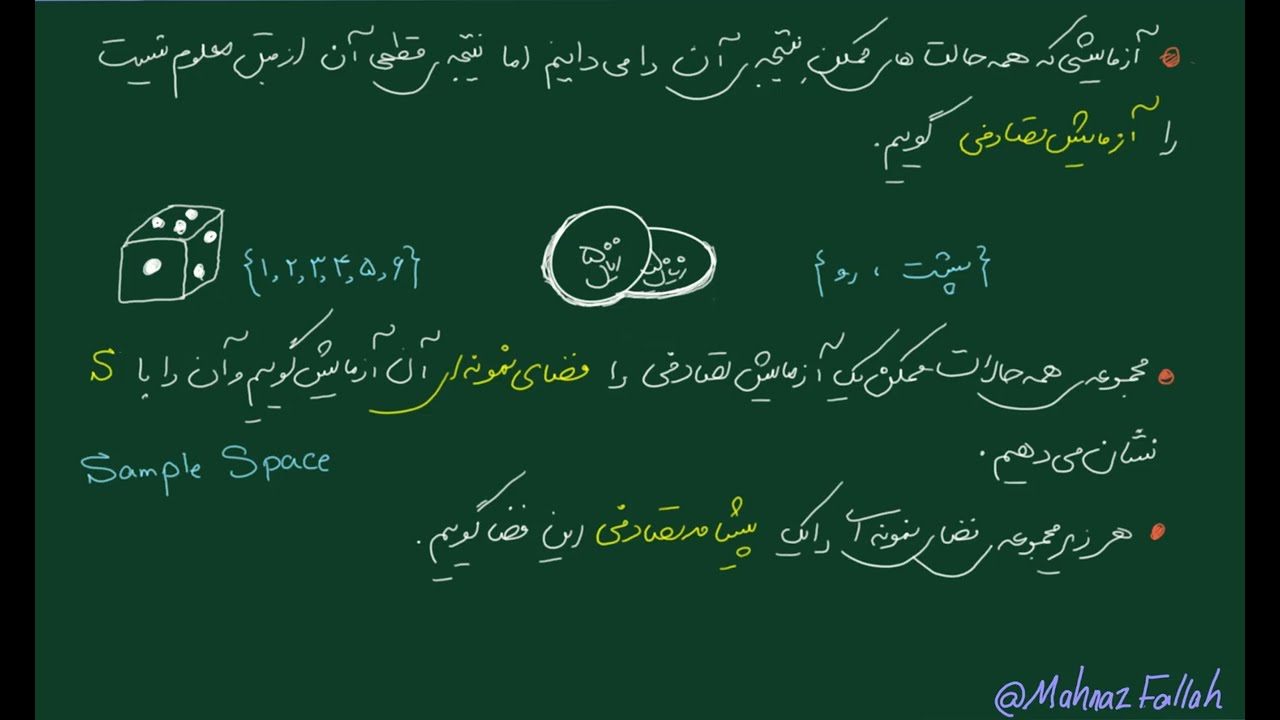 آزمایشی که همه حالت های ممکنِ نتیجه ی آن را می دانیم اما نتیجه ی قطعی آن از قبل معلوم نیست
را آزمایش تصادفی گوییم.
{۱,۲,۳,۴,۵,۶}
۵۰۰ ریال
ریال
{پشت ، رو}
مجموعه ی همه حالات ممکن یک آزمایش تصادفی را فضای نمونه ای آن آزمایش گوییم و آن را با S
نشان می دهیم.
Sample Space
هر زیرمجموعه ی فضای نمونه ای را یک پیشامد تصادفی این فضا گوییم.
@Mahnaz Fallah